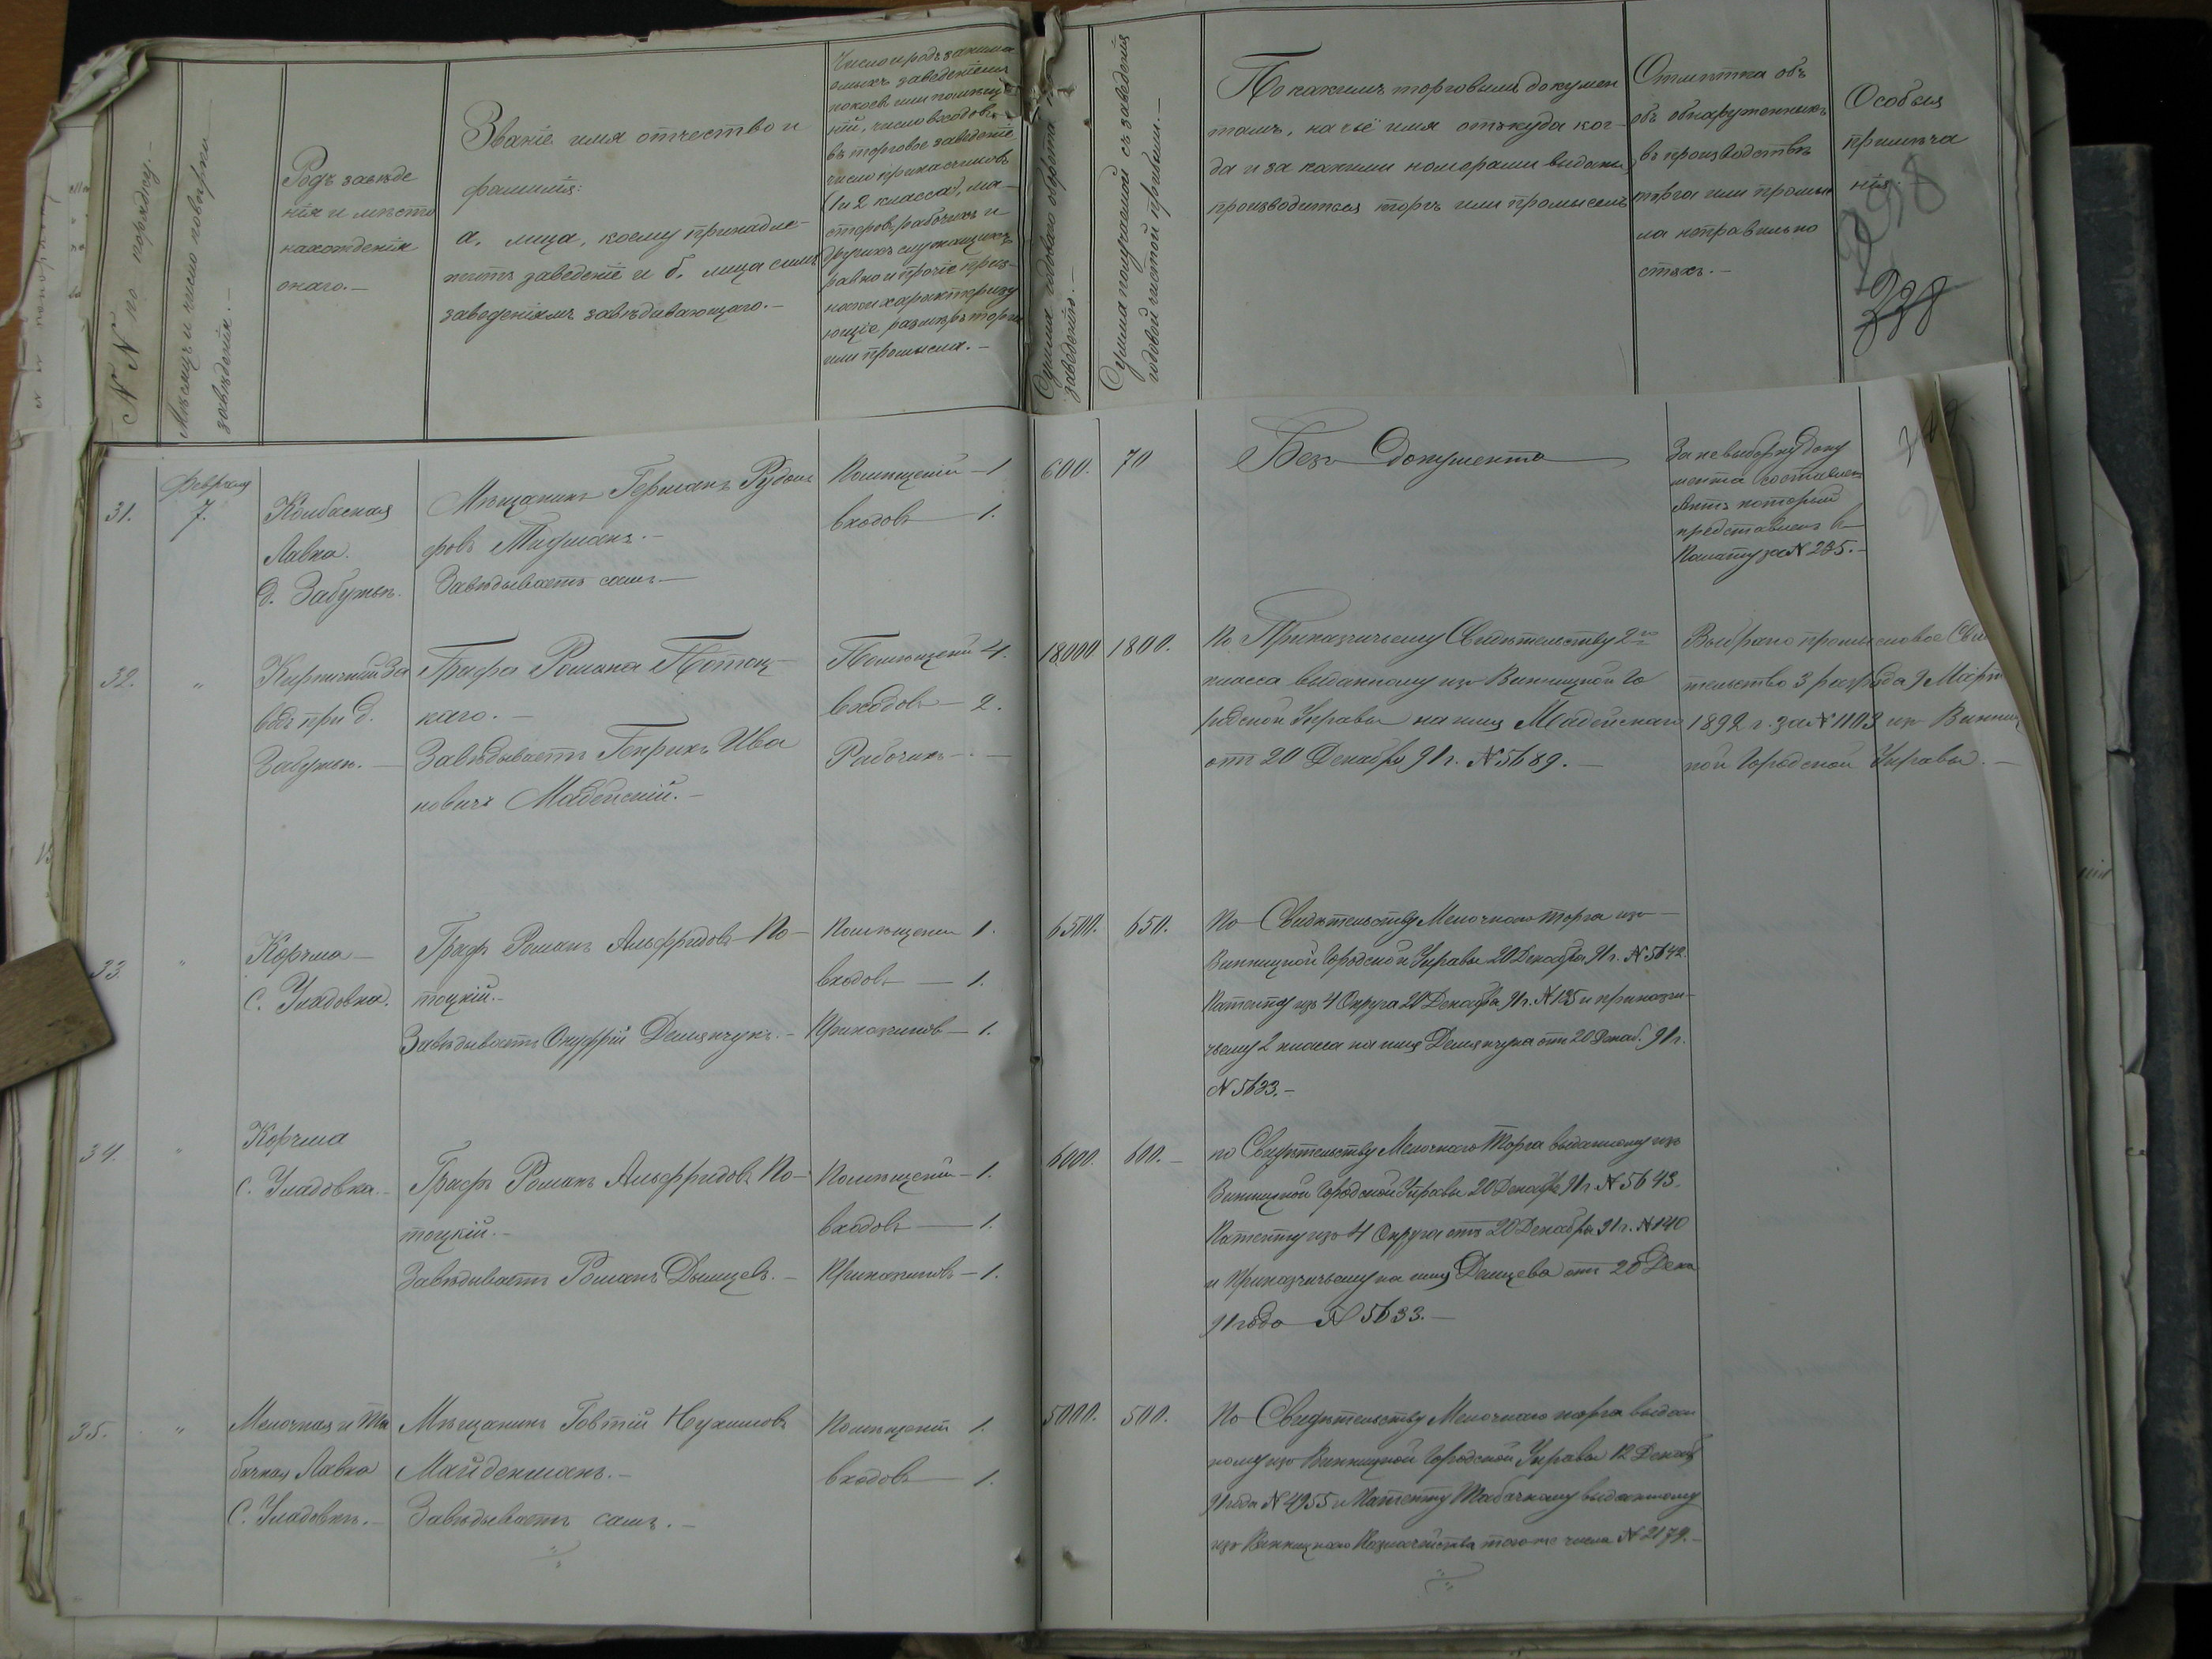 N N по порядку.—
Мѣсяцъ и число повѣрки
заведенія.—
Родъ заведе
нія и мѣсто
нахожденія
онаго.—
Званіе имя отчество и
фамилія:
а, лица, коему принадле-
житъ заведеніе и б, лица симъ
заведеніемъ завѣдывающаго.—
Число и родъ занима
емыхъ заведеніемъ
покоевъ или помѣще
ній, число входовъ
въ торговое заведеніе
число прикащиковъ
(1 и 2 класса), ма-
стеровъ, рабочихъ и
другихъ служащихъ
равно и прочіе приз-
наки характеризу
ющіе размѣръ торга
или промысла.—
Сумма годоваго оборота по
заведенію.—
Сумма получаемой съ заведенія
годовой чистой прибыли.—
По какимъ торговымъ докумен
тамъ, на чьё имя откуда ког-
да и за какими номерами выданы
производится торгъ или промыселъ
Отмѣтка объ
объ обнаруженныхъ
въ производствѣ
торга или промыс
ла неправильно
стяхъ.—
Особыя
примѣча
нія.—
298
31.
Февраля
7.
Колбасная
Лавка.
д. Забужье.
Мѣщанинъ Германъ Рудоль
фовъ
Завѣдываетъ самъ—
Помѣщеній—1
входовъ—1.
600.
70
Безъ Документа
За невыборку Доку
мента составленъ
Актъ который
представленъ въ
Палату за N 235.—
32.
"
Кирпичный За
водъ при д.
Забужье.—
Графа Романа Потоц-
каго.—
Завѣдываетъ Генрихъ Ива
новичъ Мадейскій.—
Помѣщеній 4.
входовъ—2.
Рабочихъ—.—
18000
1800.
По Прикащичьему Свидѣтельству 2го
класса выданному изъ Винницкой Го
родской Управы на имя Мадейскаго
отъ 20 Декабря 91 г. N 5689.—
Выбрано промысловое Сви
тельство 3 разряда 9 Март
1892 г. за N 1103 изъ Винниц
кой Городской Управы.—
33.
"
Корчма—
С. Уладовка.
Графъ Романъ Альфридовъ По-
тоцкій.—
Завѣдываетъ Онуфрій Демянчукъ.—
Помѣщеній 1.
входовъ—1.
Прикащиковъ—1.
6500.
650.
По Свидѣтельству Мелочнаго торга изъ—
Винницкой Городской Управы 20 Декабря 91 г. N 5642.
Патенту изъ 4 Округа 20 Декабря 91 г. N 135 и прикащи-
чьему 2 класса на имя Демянчука отъ 20 Декаб. 91 г.
N 5633.—
34.
"
Корчма
С. Уладовка.—
Графъ Романъ Альфридовъ По-
тоцкій.—
Завѣдываетъ Романъ Дымцевъ.—
Помѣщеній—1.
входовъ—1.
Прикащиковъ—1.
6000.
600.—
по Свидѣтельству Мелочнаго Торга выданному изъ
Винницкой Городской Управы 20 Декабря 91 г. N 5643.
Патенту изъ 4 Округа отъ 20 Декабря 91 г. N 140
и Прикащичьему на имя Демцева отъ 20 Дека
91 года N 5633.—
35.
"
Мелочная и Та
бачная Лавка
С. Уладовкѣ.—
Мѣщанинъ Нухимовъ
Майденманъ.—
Завѣдываетъ самъ.—
Помѣщеній 1.
входовъ—1.
5000.
500.
По Свидѣтельству Мелочнаго торга выдан
ному изъ Винницкой Городской Управы 12 Декаб
91 года N 4955 и Патенту Табачному выданному
изъ Винницкаго Казначейства того же числа N 2179.—